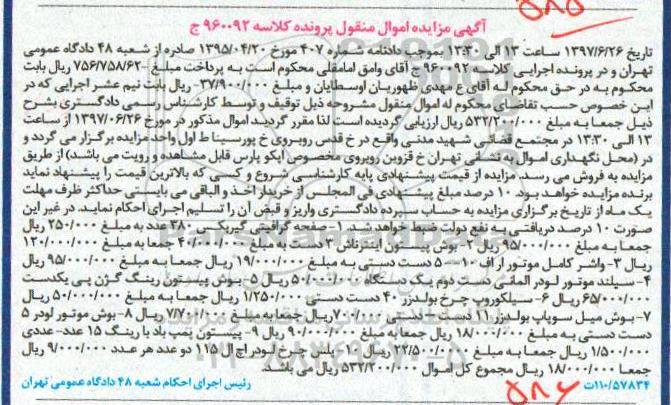 آگهی مزایده اموال منقول پرونده کلاسه ۹۶۰۰۹۲ ج
تاریخ ۱۳۹۷/۶/۲۶ ساعت ۱۳ الی ۱۳:۳۰ بموجب دادنامه شماره ۴۰۷ مورخ ۱۳۹۵/۰۴/۲۰ صادره از شعبه ۴۸ دادگاه عمومی
تهران و در پرونده اجرایی کلاسه ۹۶۰۰۹۲ ج آقای وامق امامقلی محکوم است به پرداخت مبلغ ۷۵۶/۷۵۸/۶۲۰ ریال بابت
محکوم به در حق محکوم له آقای ع مهدی ظهوریان اوسطایان و مبلغ ۳۷/۹۰۰/۰۰۰ ریال بابت نیم عشر اجرایی که در
این خصوص حسب تقاضای محکوم له اموال منقول مشروحه ذیل توقیف و توسط کارشناس رسمی دادگستری بشرح
ذیل جمعا به مبلغ ۵۳۲/۲۰۰/۰۰۰ ریال ارزیابی گردیده است لذا مقرر گردید اموال مذکور در مورخ ۱۳۹۷/۰۶/۲۶ از ساعت
۱۳ الی ۱۳:۳۰ در مجتمع قضائی شهید مدنی واقع در خ قدس روبروی خ پورسینا ط اول واحد مزایده برگزار می گردد و
در (محل نگهداری اموال به نشانی تهران خ قزوین روبروی مخصوص ایکو پارس قابل مشاهده و رویت می باشد) از طریق
مزایده به فروش می رسد. مزایده از قیمت پیشنهادی پایه کارشناسی شروع و کسی که بالاترین قیمت را پیشنهاد نماید
برنده مزایده خواهد بود. ۱۰ درصد مبلغ پیشنهادی فی المجلس از خریدار اخذ و الباقی می بایستی حداکثر ظرف مهلت
یک ماه از تاریخ برگزاری مزایده به حساب سپرده دادگستری واریز و قبض آن را تسلیم اجرای احکام نماید. در غیر این
صورت ۱۰ درصد دریافتی به نفع دولت ضبط خواهد شد. ۱- صفحه گرافیتی گیربکس ۳۸۰ عدد به مبلغ ۲۵۰/۰۰۰ ریال
جمعا به مبلغ ۹۵/۰۰۰/۰۰۰ ریال ۲- بوش پیستون اینترناش ۳ دست به مبلغ ۴۰/۰۰۰/۰۰۰ جمعا به مبلغ ۱۲۰/۰۰۰/۰۰۰
ریال ۳- واشر کامل موتور ار اف ۱۰- ۵ دست دستی به مبلغ ۱۹/۰۰۰/۰۰۰ ریال جمعا به مبلغ ۹۵/۰۰۰/۰۰۰ ریال
۴- سیلند موتور لودر المانی دست دوم یک دستگاه ۵۰/۰۰۰/۰۰۰ ریال ۵- بوش پیستون رینگ گژن پی یکدست
۶۵/۰۰۰/۰۰۰ ریال ۶- سیلکوروپ چرخ بولدزر ۴۰ دست دستی ۱/۲۵۰/۰۰۰ ریال جمعا به مبلغ ۵۰/۰۰۰/۰۰۰ ریال
۷- بوش میل سوپاپ بولدزر ۱۱ دست - دستی ۷۰۰/۰۰۰ ریال جمعا به مبلغ ۷/۷۰۰/۰۰۰ ریال ۸- بوش موتور لودر ۵
دست دستی به مبلغ ۱۸/۰۰۰/۰۰۰ ریال جمعا به مبلغ ۹۰/۰۰۰/۰۰۰ ریال ۹- پیستون پمپ باد با رینگ ۱۵ عدد- عددی
۱/۵۰۰/۰۰۰ ریال جمعا به مبلغ ۲۲/۵۰۰/۰۰۰ ریال ۱۰- پلس چرخ لودر اچ ال ۱۱۵ دو عدد هر عدد ۹/۰۰۰/۰۰۰ ریال
جمعا ۱۸/۰۰۰/۰۰۰ ریال مجموع کل اموال ۵۳۲/۲۰۰/۰۰۰ ریال می باشد.
۱۱۰/۵۷۸۳۴ت رئیس اجرای احکام شعبه ۴۸ دادگاه عمومی تهران